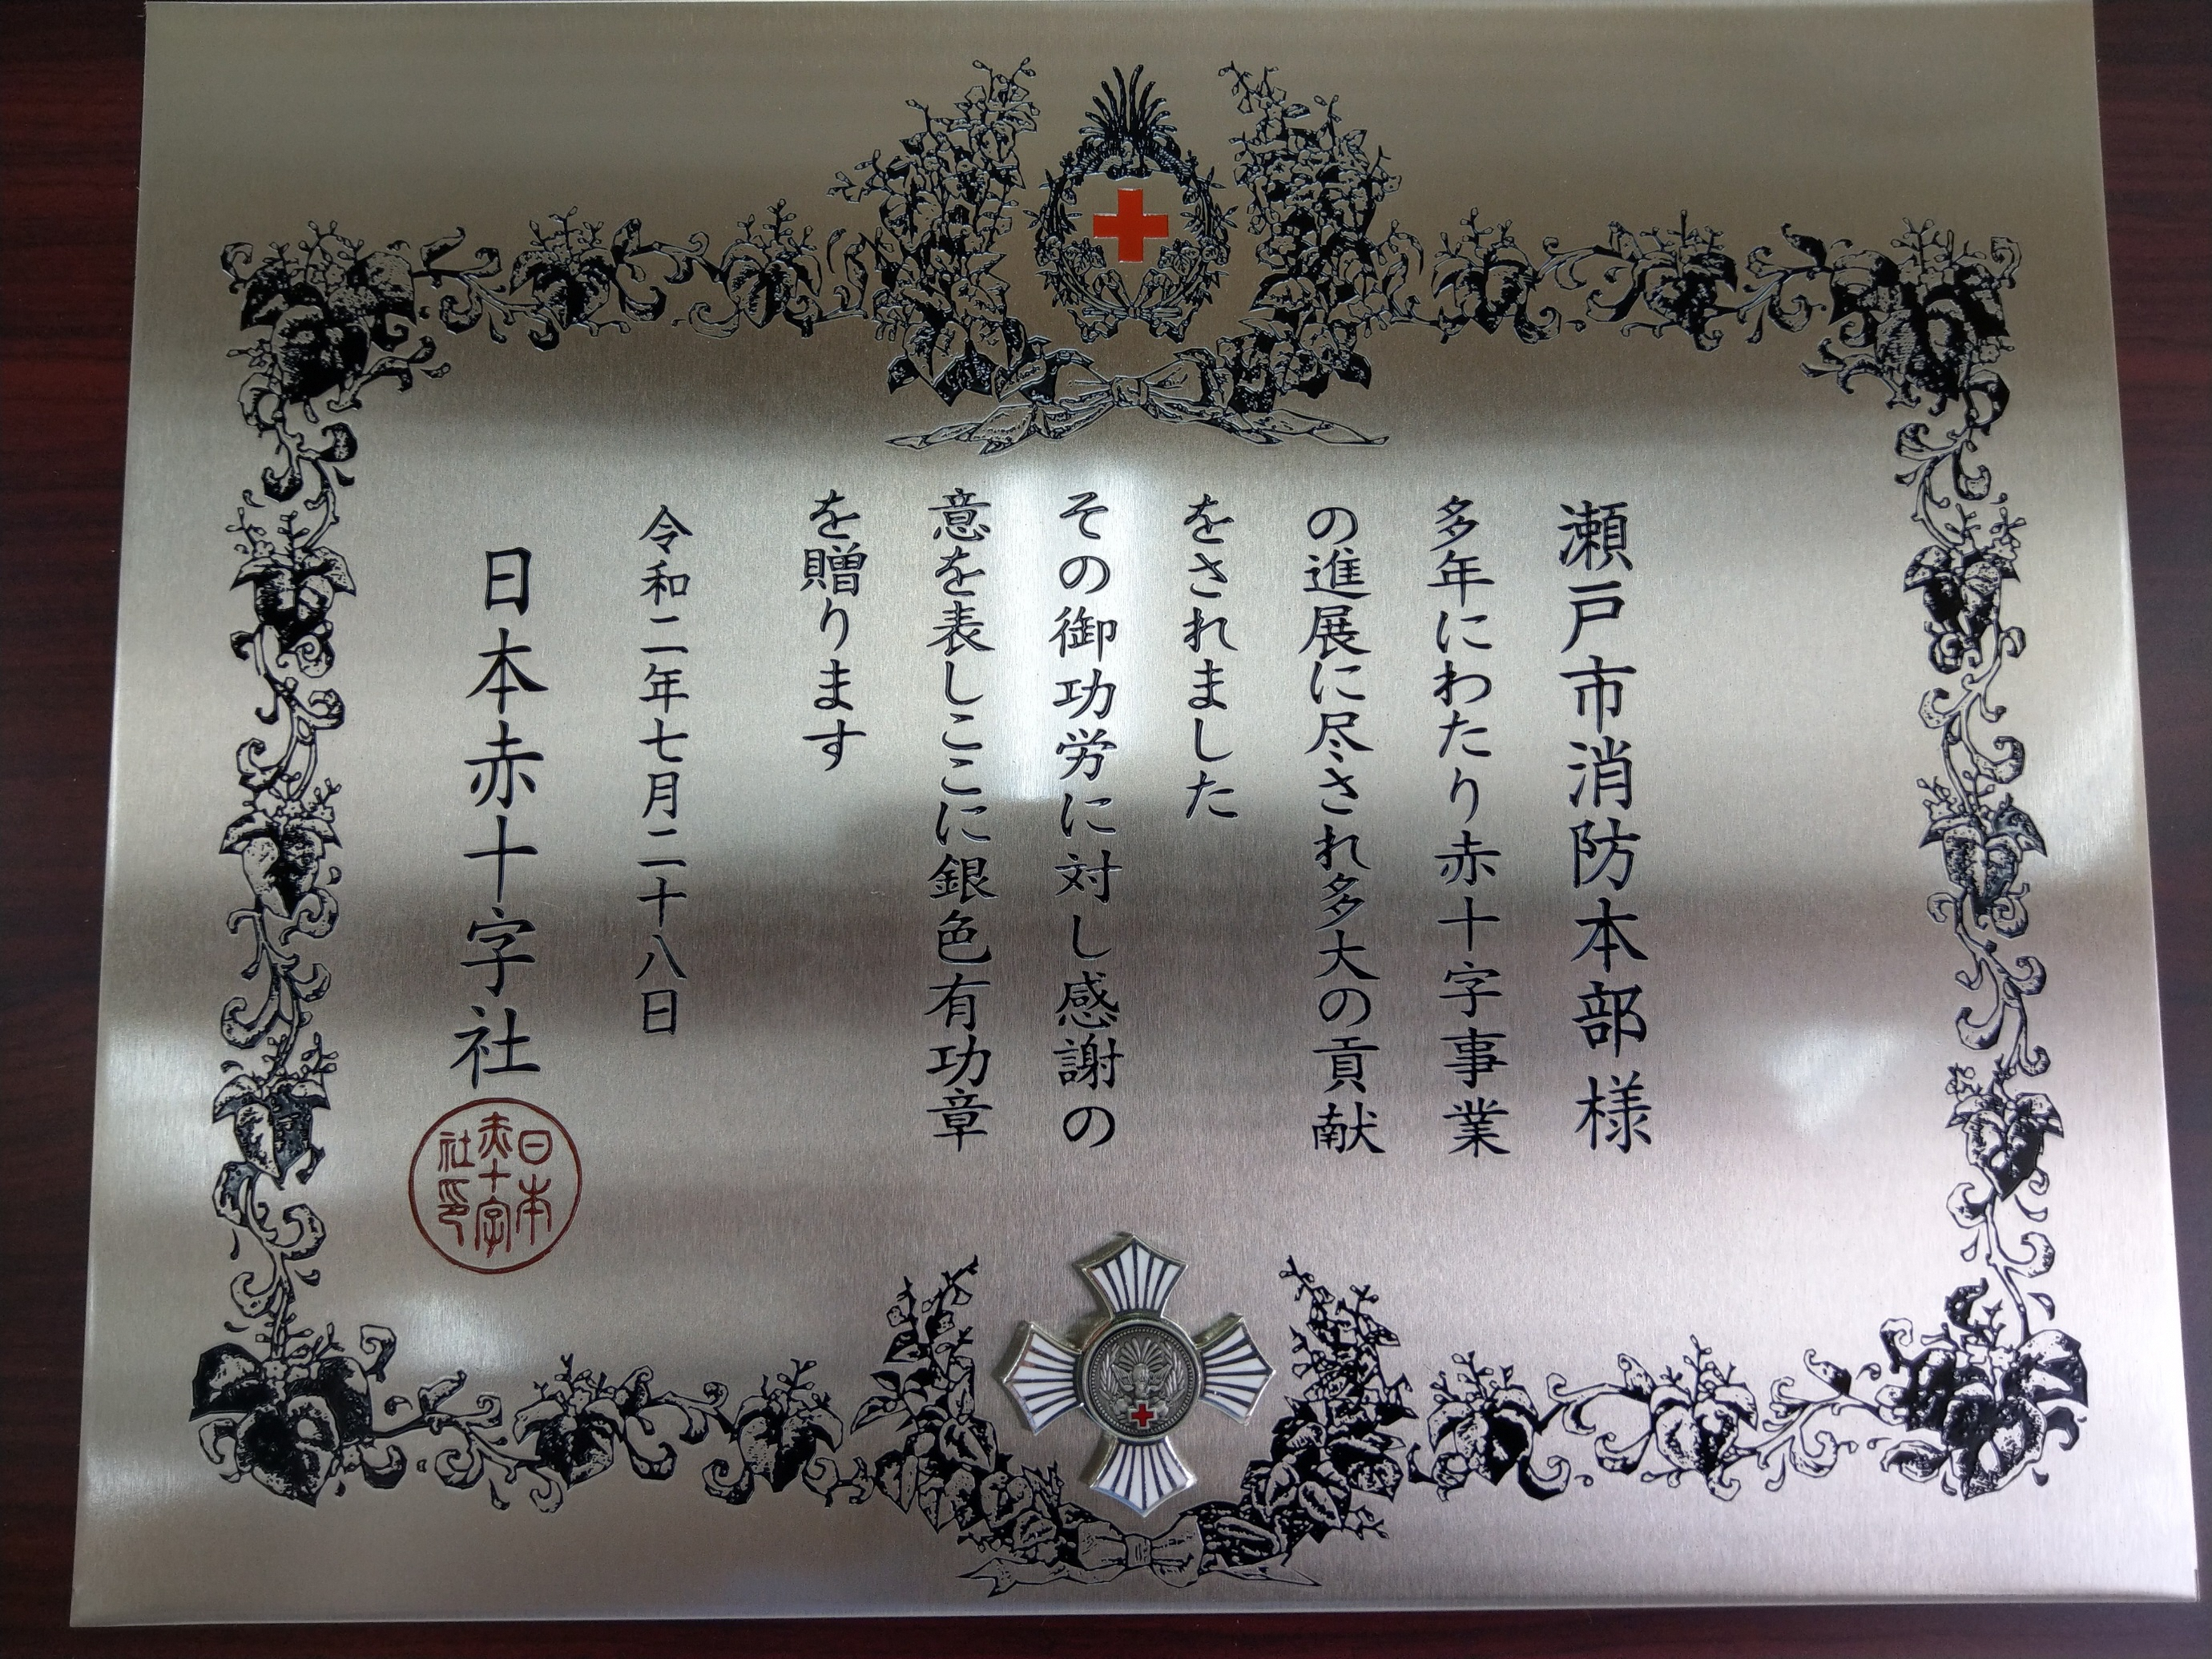 瀬戸市消防本部様
多年にわたり赤十字事業
の進展に尽され多大の貢献
をされました
その御功労に対し感謝の
意を表しここに銀色有功章
を贈ります
令和二年七月二十八日
日本赤十字社
日本
赤十字
社印